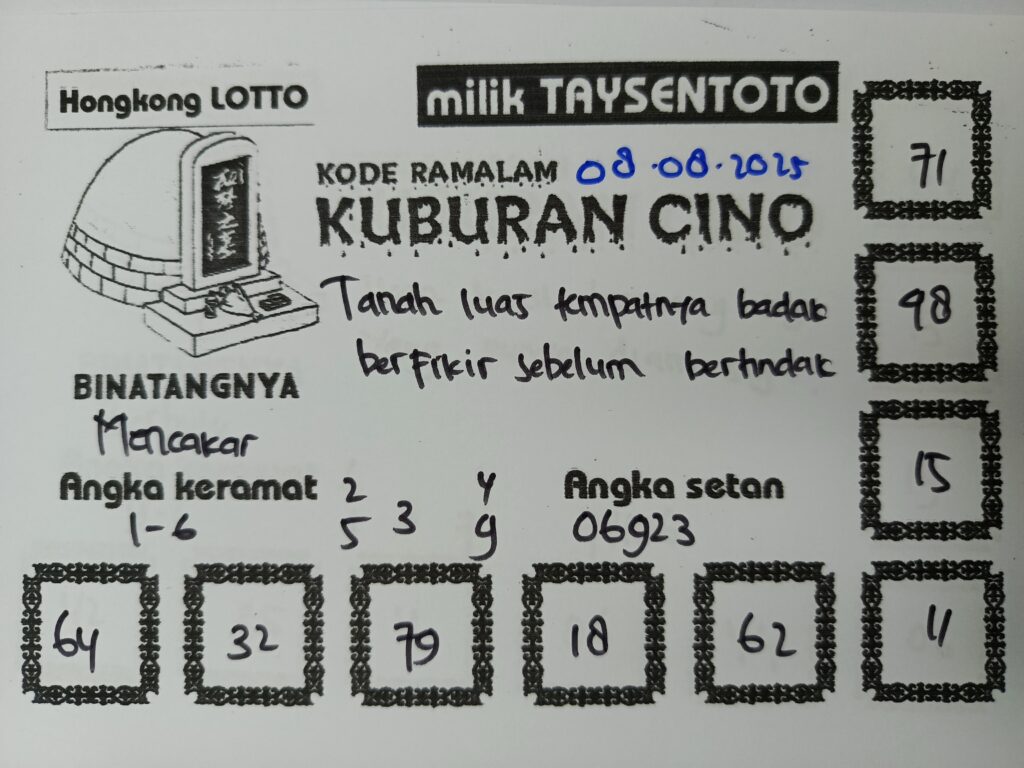 Hongkong LOTTO
milik TAYSENTOTO
KODE RAMALAM 08.08.2025
KUBURAN CINO
Tanah luas tempatnya badak
berfikir sebelum bertindak
BINATANGNYA
Mencakar
Angka keramat
1-6
2 4
5 3 9
Angka setan
06923
71
98
15
64 32 79 18 62 11